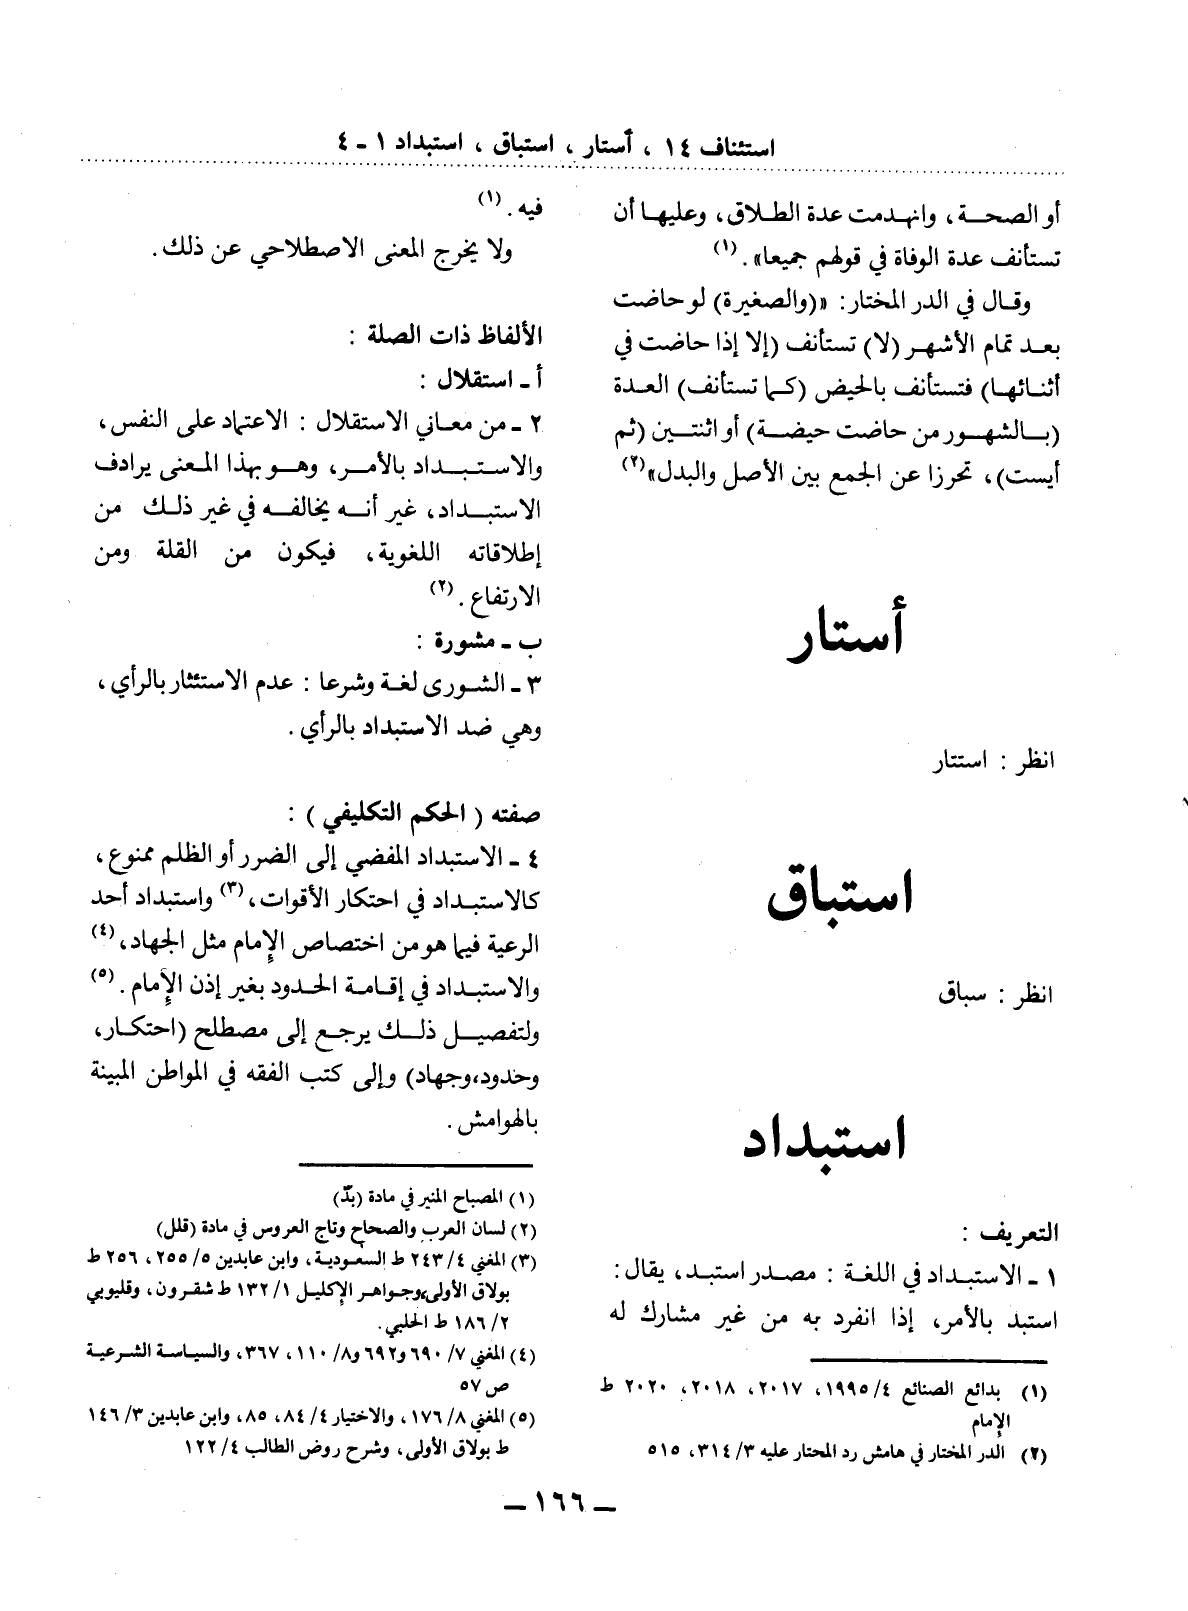 استئناف ١٤ ، أستار ، استباق ، استبداد ١ ـ ٤
أو الصحـة ، وانهدمت عدة الطلاق ، وعليها أن
تستأنف عدة الوفاة في قولهم جميعا» . (١)
وقال في الدر المختار : «(والصغيرة) لو حاضت
بعد تمام الأشهر (لا) تستأنف (إلا إذا حاضت في
أثنائها) فتستأنف بالحيض (كما تستأنف) العدة
(بالشهور من حاضت حيضة) أو اثنتين (ثم
أيست) ، تحرزا عن الجمع بين الأصل والبدل» (٢)
أستار
انظر : استتار
استباق
انظر : سباق
استبداد
التعريف :
١ ـ الاستبداد في اللغة : مصدر استبد ، يقال :
استبد بالأمر ، إذا انفرد به من غير مشارك له
(١) بدائع الصنائع ٤/ ١٩٩٥، ٢٠١٧، ٢٠١٨، ٢٠٢٠ ط
الإمام
(٢) الدر المختار في هامش رد المحتار عليه ٣/ ٣١٤، ٥١٥
فيه . (١)
ولا يخرج المعنى الاصطلاحي عن ذلك .
الألفاظ ذات الصلة :
أ ـ استقلال :
٢ ـ من معاني الاستقلال : الاعتماد على النفس ،
والاستبداد بالأمر ، وهو بهذا المعنى يرادف
الاستبداد ، غير أنه يخالفه في غير ذلك من
إطلاقاته اللغوية ، فيكون من القلة ومن
الارتفاع . (٢)
ب ـ مشورة :
٣ ـ الشورى لغة وشرعا : عدم الاستئثار بالرأي ،
وهي ضد الاستبداد بالرأي .
صفته ( الحكم التكليفي ) :
٤ ـ الاستبداد المفضي إلى الضرر أو الظلم ممنوع ،
كالاستبداد في احتكار الأقوات ، (٣) واستبداد أحد
الرعية فيما هو من اختصاص الإمام مثل الجهاد ، (٤)
والاستبداد في إقامة الحدود بغير إذن الإمام . (٥)
ولتفصيل ذلك يرجع إلى مصطلح (احتكار ،
وحدود، وجهاد) وإلى كتب الفقه في المواطن المبينة
بالهوامش .
(١) المصباح المنير في مادة (بدّ)
(٢) لسان العرب والصحاح وتاج العروس في مادة (قلل)
(٣) المغني ٤/ ٢٤٣ ط السعودية ، وابن عابدين ٥/ ٢٥٥، ٢٥٦ ط
بولاق الأولى، وجواهر الإكليل ١/ ١٣٢ ط شقرون ، وقليوبي
٢/ ١٨٦ ط الحلبي .
(٤) المغني ٧/ ٦٩٠ و٦٩٢ و٨/ ١١٠، ٣٦٧، والسياسة الشرعية
ص ٥٧
(٥) المغني ٨/ ١٧٦ ، والاختيار ٤/ ٨٤، ٨٥، وابن عابدين ٣/ ١٤٦
ط بولاق الأولى ، وشرح روض الطالب ٤/ ١٢٢
ـ ١٦٦ ـ